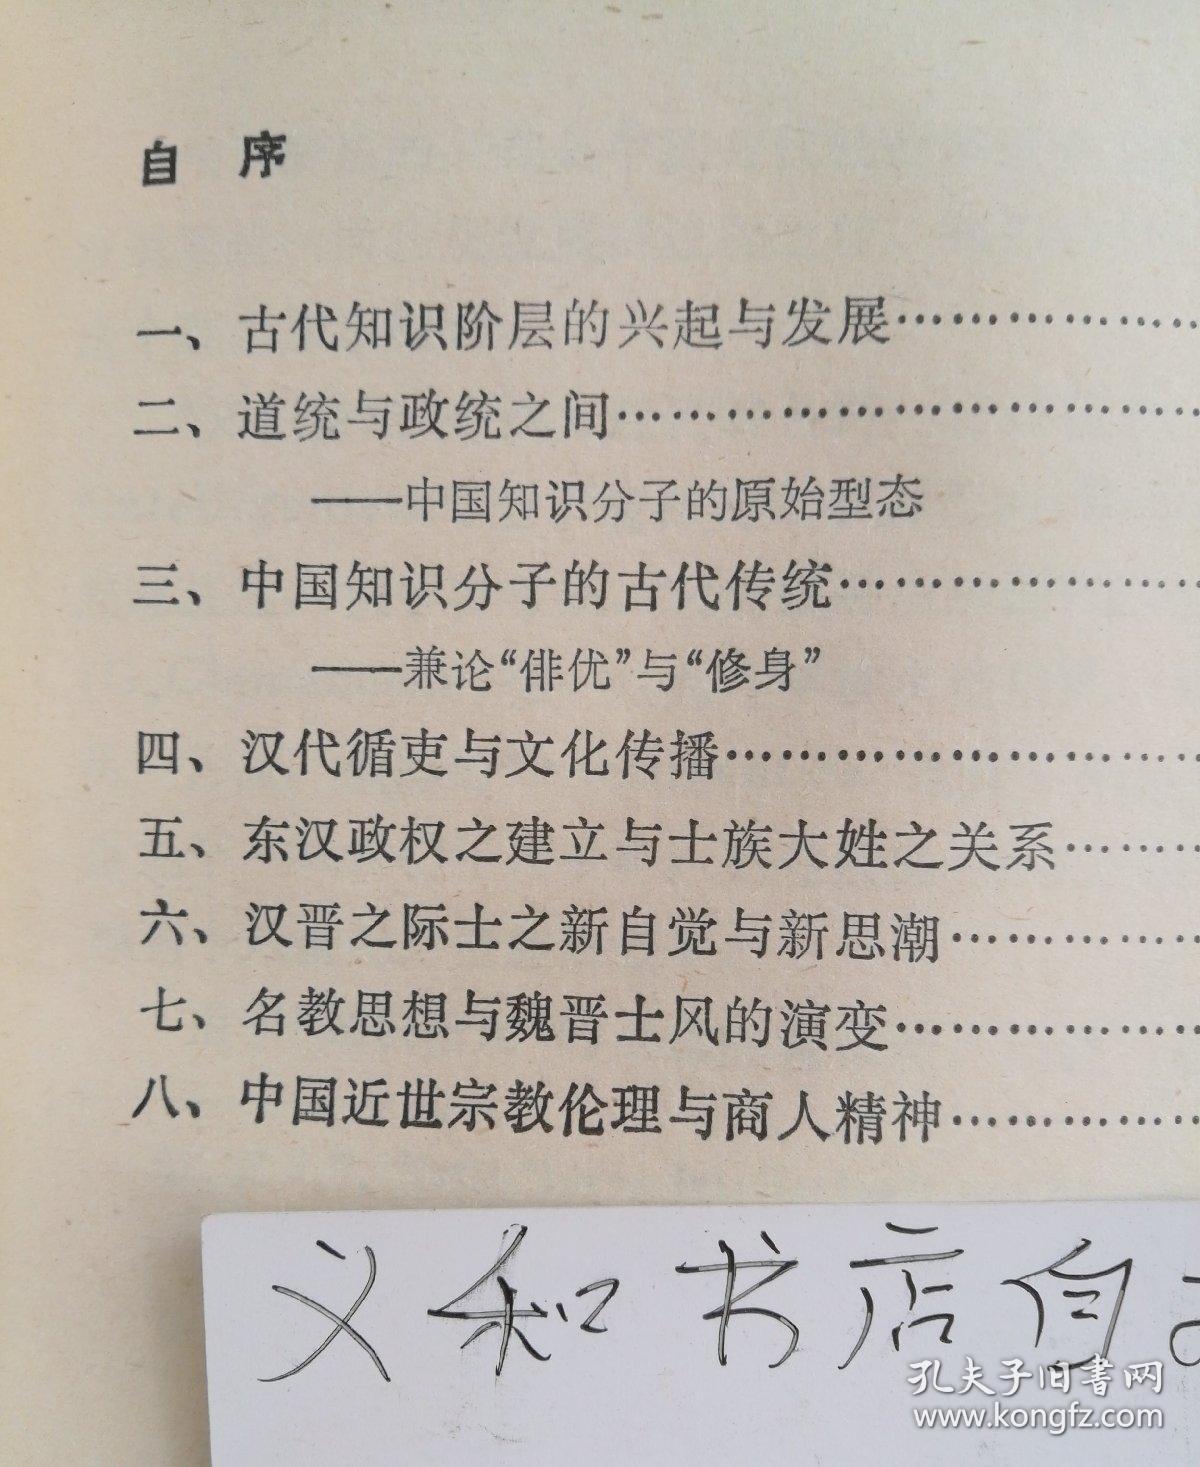 自 序
一、古代知识阶层的兴起与发展………………
二、道统与政统之间………………………………
——中国知识分子的原始型态
三、中国知识分子的古代传统…………………
——兼论“俳优”与“修身”
四、汉代循吏与文化传播………………………
五、东汉政权之建立与士族大姓之关系………
六、汉晋之际士之新自觉与新思潮……………
七、名教思想与魏晋士风的演变………………
八、中国近世宗教伦理与商人精神……………
义知书店自
孔夫子旧书网
www.kongfz.com